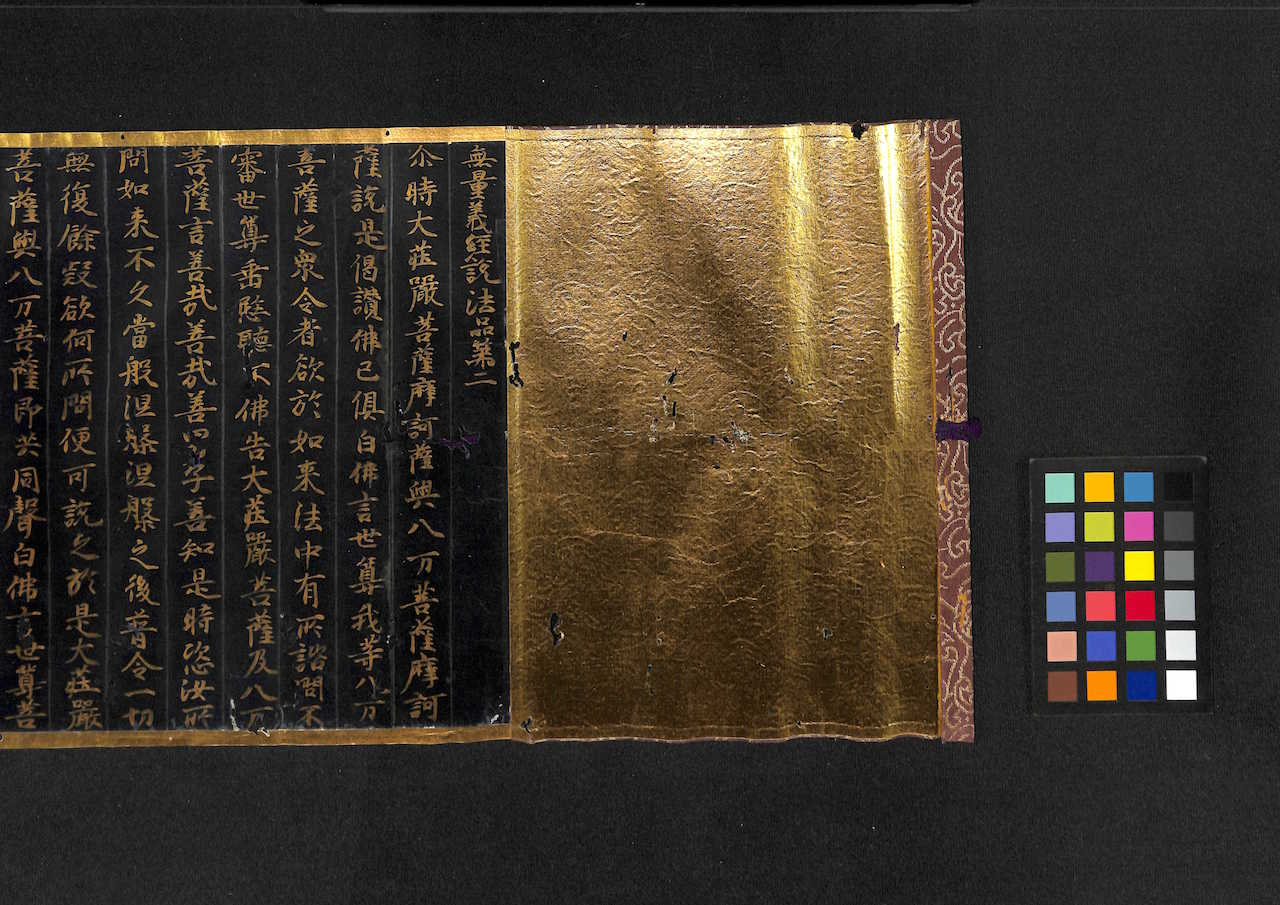 無量義経說法品第二
尒時大莊嚴菩薩摩訶薩與八万菩薩摩訶
薩說是偈讚佛已俱白佛言世尊我等八万
菩薩之衆今者欲於如来法中有所諮問不
審世尊垂愍聽不佛告大莊嚴菩薩及八万
菩薩言善哉善哉善男子善知是時恣汝所
問如来不久當般涅槃涅槃之後普令一切
無復餘疑欲何所問便可說之於是大莊嚴
菩薩與八万菩薩即共同聲白佛言世尊菩